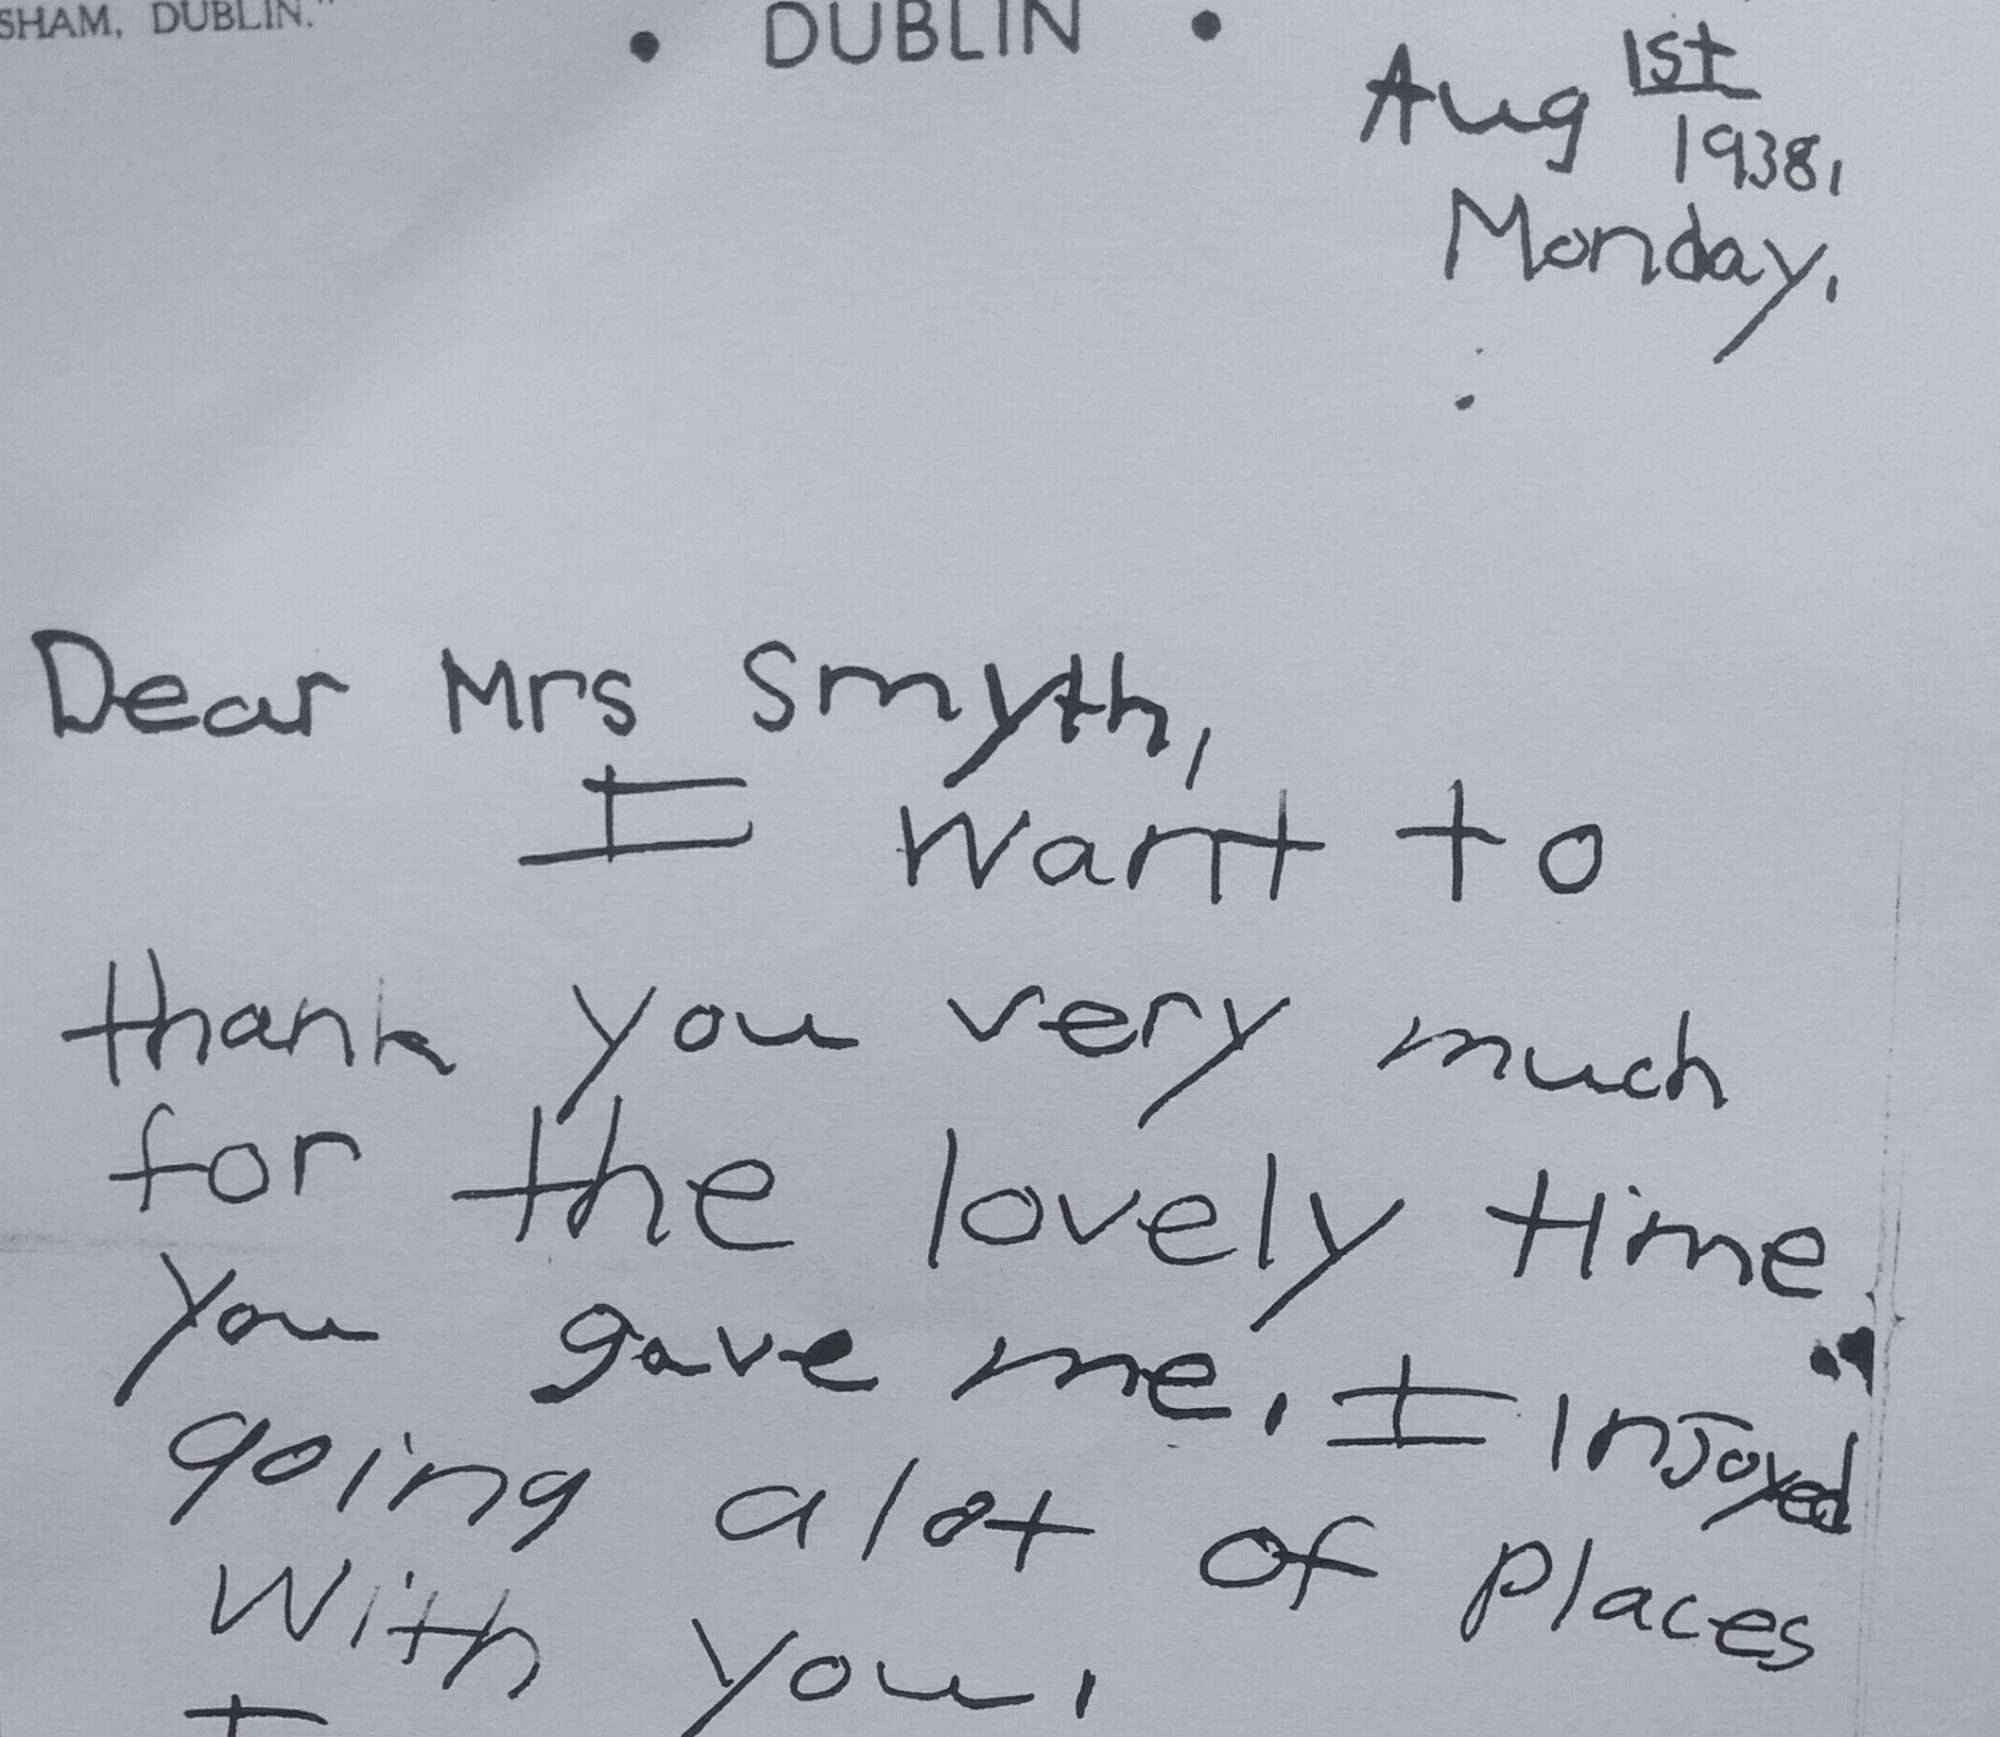 SHAM, DUBLIN."
• DUBLIN •
Aug 1st
1938,
Monday,
Dear Mrs Smyth,
I want to
thank you very much
for the lovely time
you gave me, I injoyed
going alot of places
with you,
I